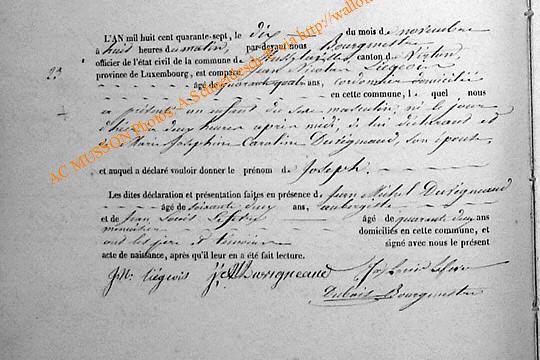 L'AN mil huit cent quarante-sept, le dix du mois de novembre
à huit heures du matin, par-devant nous Bourgmestre
officier de l'état civil de la commune de canton de Virton,
23 province de Luxembourg, est comparu Jean Nicolas Liégeois
âgé de quarante quatre ans, cordonnier domicilié
en cette commune, lequel nous
a présenté un enfant du sexe masculin né le jour
d'hier à deux heures après midi, de lui déclarant et
de Marie Joséphine Caroline Duvigneaud, son épouse
et auquel a déclaré vouloir donner le prénom de Joseph.
Les dites déclaration et présentation faites en présence de Jean Michel Duvigneaud
âgé de soixante deux ans, aubergiste
et de Jean Louis Lefevre âgé de quarante deux ans
menuisier domiciliés en cette commune, et
ont les père et témoins signé avec nous le présent
acte de naissance, après qu'il leur en a été fait lecture.
J. N. Liégeois J. M. Duvigneaud Jn Louis Lefevre
Dubois Bourgmestre
AC MUSSON Photos: via http://wallo